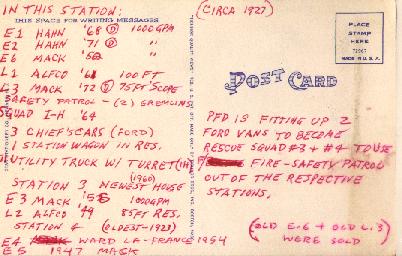 IN THIS STATION:
THIS SPACE FOR WRITING MESSAGES
E1 HAHN '68 D 1000 GPM
E2 HAHN '71 D "
E6 MACK '52 "
L1 ALFCO '61 100 FT
L3 MACK '72 D 75 FT SCOPE
SAFETY PATROL - (2) GREMLINS
SQUAD I-H '64
3 CHIEF'S CARS (FORD)
1 STATION WAGON IN RES.
UTILITY TRUCK W/ TURRET (IH)
(1960)
STATION 3 NEWEST HOUSE
E3 MACK '58 1000 GPM
L2 ALFCO '49 85 FT RES.
STATION 4 (OLDEST-1928)
E4 WARD LA-FRANCE 1954
E5 1947 MACK
(CIRCA 1927)
PLACE
STAMP
HERE
MADE IN U.S.A.
POST CARD
PFD IS FITTING UP 2
FORD VANS TO BECOME
RESCUE SQUAD #3 + #4 TO USE
FIRE-SAFETY PATROL
OUT OF THE RESPECTIVE
STATIONS.
(OLD E.6 + OLD L.3
WERE SOLD)